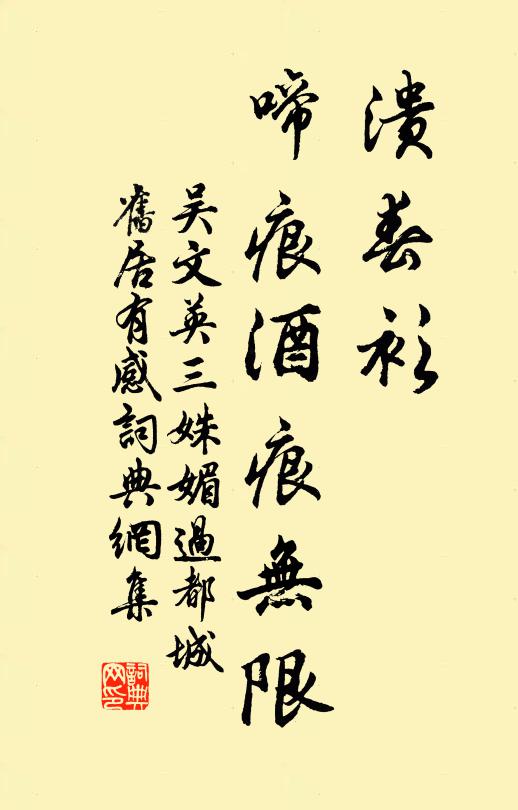 潰春衫
啼痕酒痕無限
吴文英三姝媚過都城
舊居有感詞典網集
詞典
网印